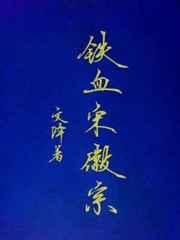 铁血宋徽宗
文峰著